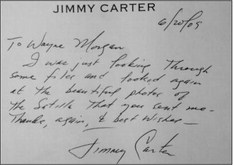 JIMMY CARTER
6/20/05
To Wayne Morgan
I was just looking through
some files and looked again
at the beautiful photos of
the that you sent me.
Thanks, again, & best wishes —
Jimmy Carter